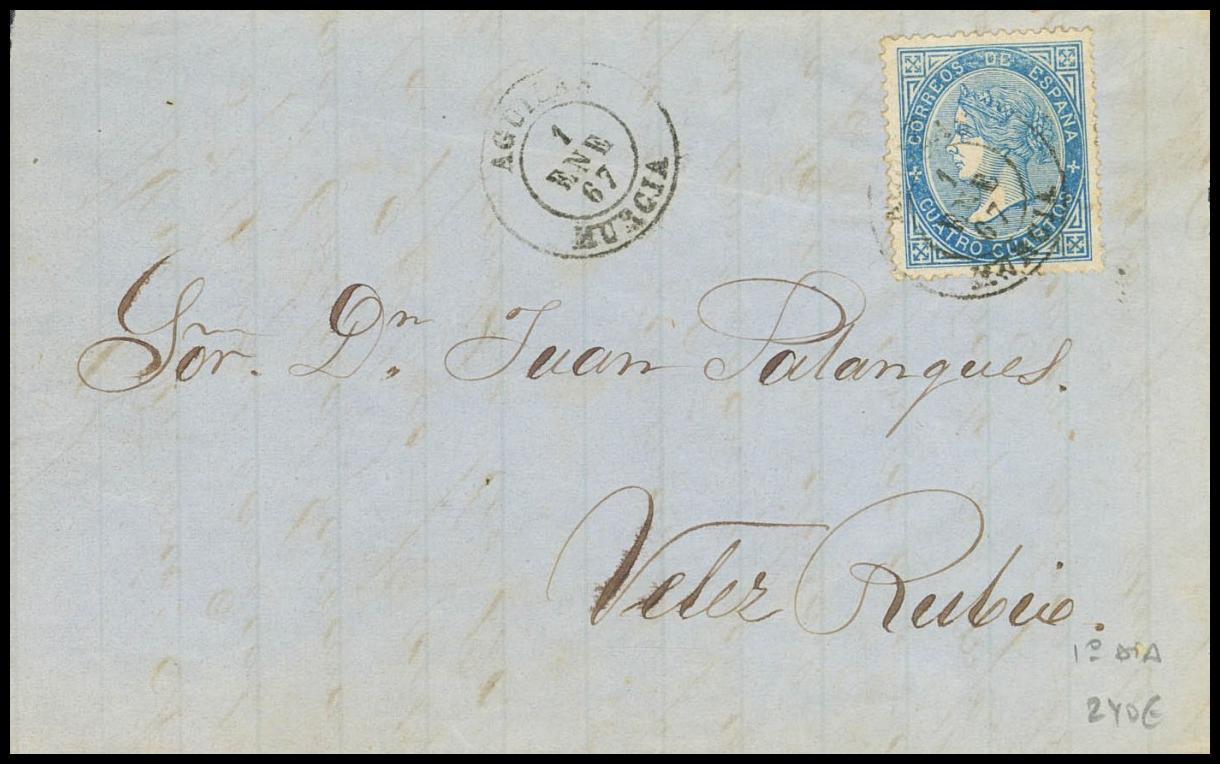 AGUILAS
1
ENE
67
MURCIA
CORREOS DE ESPAÑA
CUATRO CUARTOS
1
67
MURCIA
Sor. Dn. Juan Palanques.
Velez Rubio.
1º DIA
240€